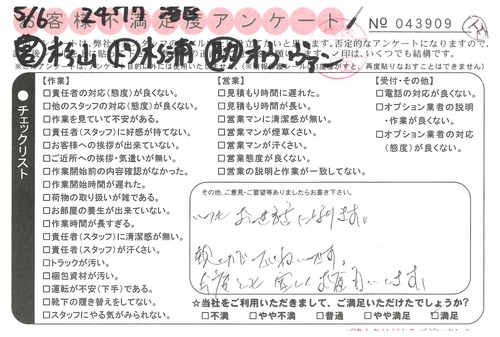 5/6 2477
お客様不満足度アンケート
No 043909
チェックリスト
【作業】
□責任者の対応(態度)が良くない。
□他のスタッフの対応(態度)が良くない。
□作業を見ていて不安がある。
□責任者(スタッフ)に好感が持てない。
□お客様への挨拶が出来ていない。
□ご近所への挨拶・気遣いが無い。
□作業開始前の内容確認がなかった。
□作業開始時間が遅れた。
□荷物の取り扱いが雑である。
□お部屋の養生が出来ていない。
□作業時間が長すぎる。
□責任者(スタッフ)に清潔感が無い。
□責任者(スタッフ)が汗くさい。
□トラックが汚い。
□梱包資材が汚い。
□運転が安全(下手)である。
□靴下の履き替えをしてない。
□スタッフにやる気がみられない。
【営業】
□見積もり時間に遅れた。
□見積もり時間が長い。
□営業マンに清潔感が無い。
□営業マンが煙草くさい。
□営業マンが汗くさい。
□営業態度が良くない。
□営業の説明と作業が一致してない。
【受付・その他】
□電話の対応が良くない。
□オプション業者の説明
・作業が良くない。
□オプション業者の対応
(態度)が良くない。
その他、ご意見・ご要望等ありましたらお書き下さい。
いつもお世話になります。
☆当社をご利用いただきまして、ご満足いただけたでしょうか?
□不満 □やや不満 □普通 □やや満足 □満足